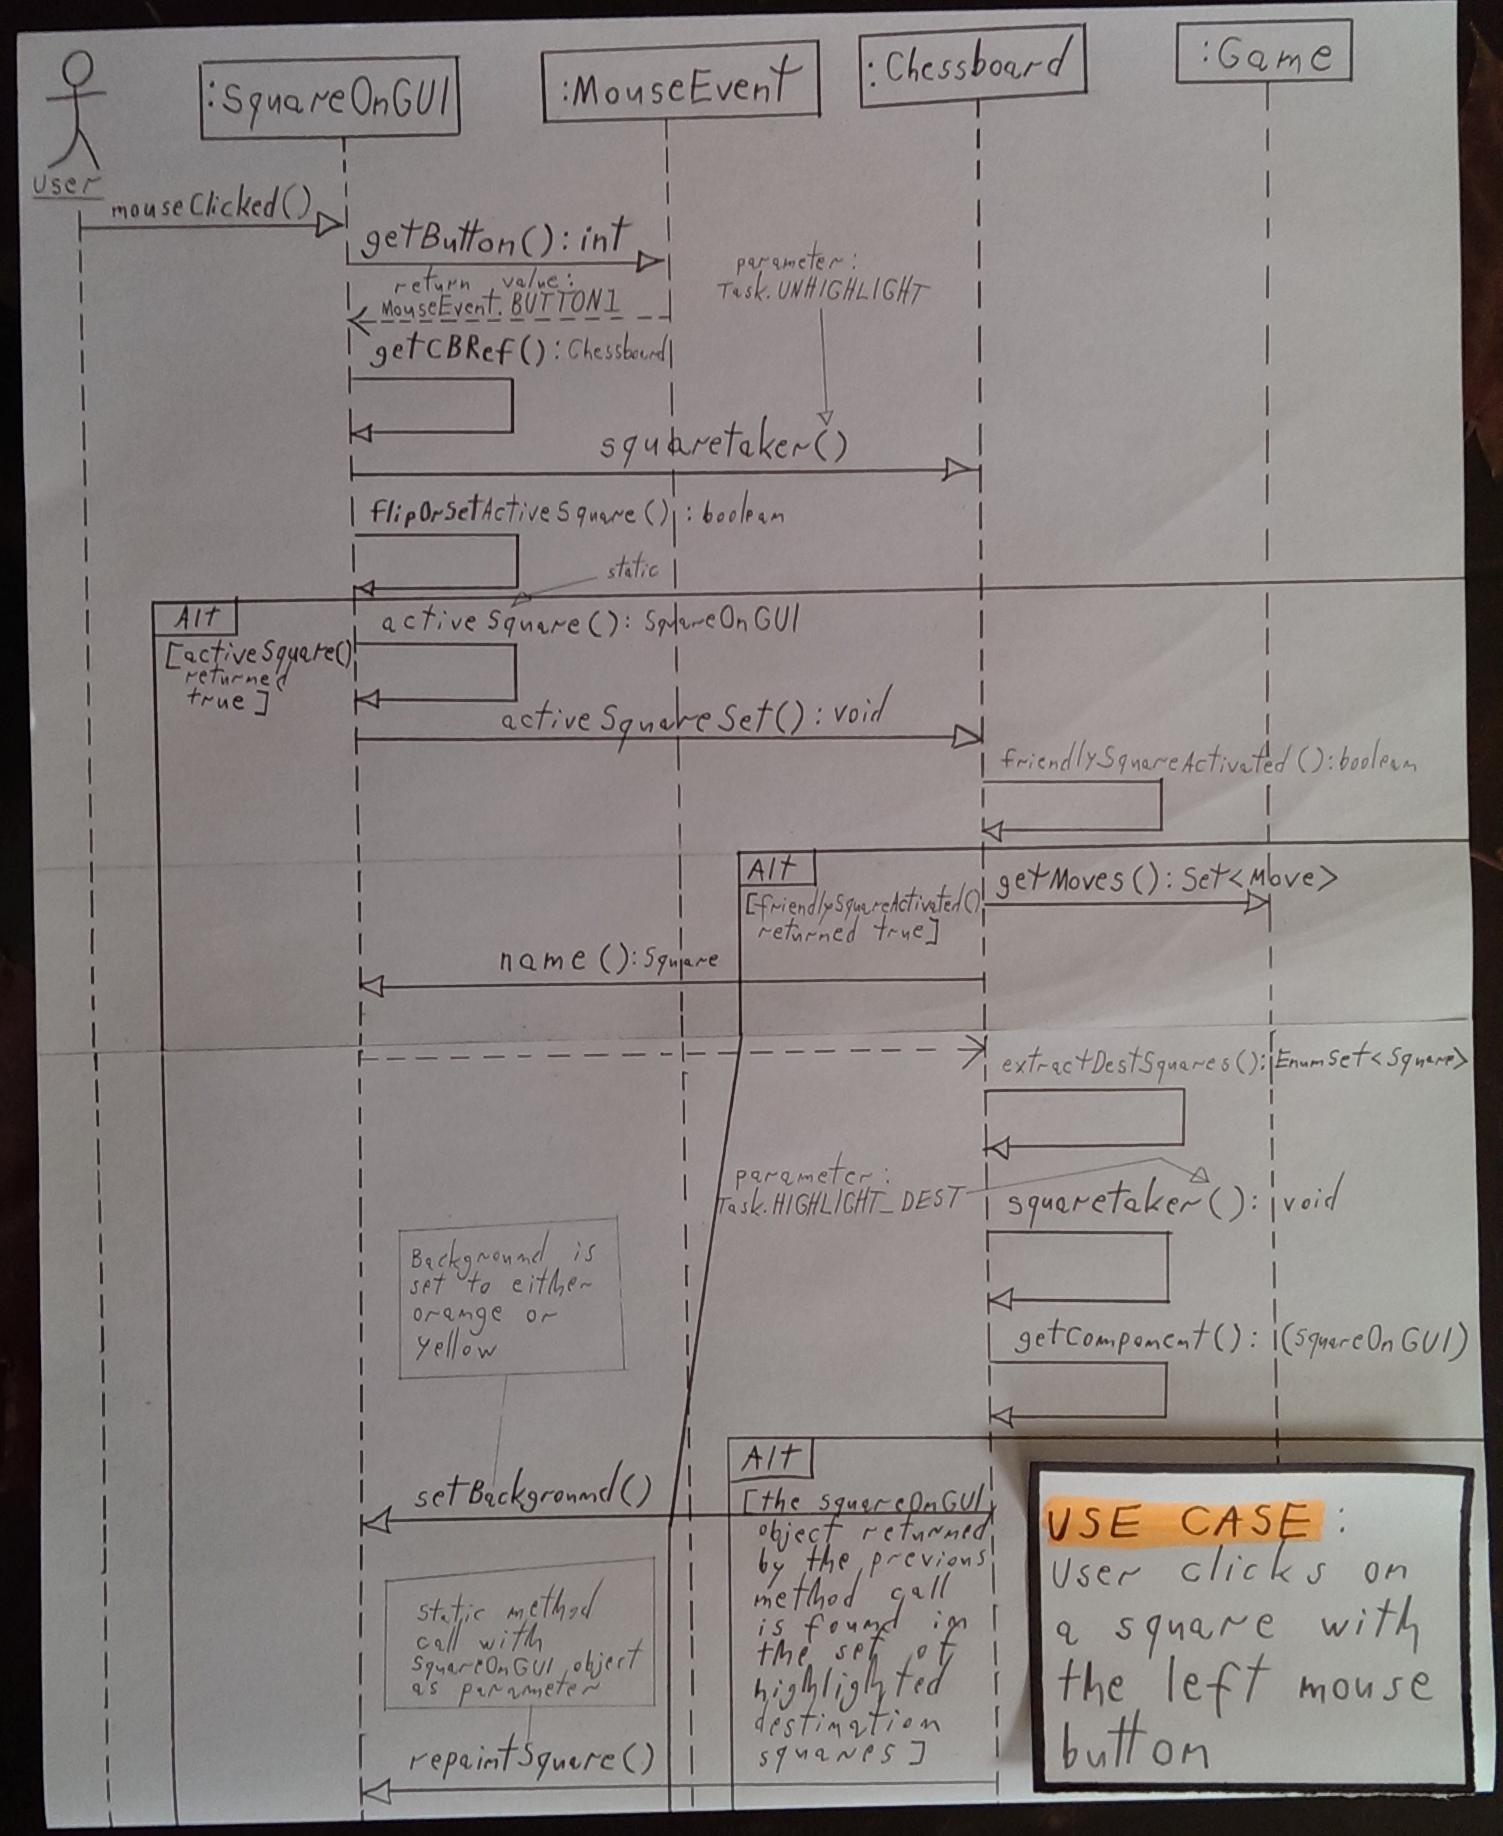 :SquareOnGUI
:MouseEvent
:Chessboard
:Game
User
mouseClicked()
getButton(): int
return value:
MouseEvent.BUTTON1
parameter:
Task.UNHIGHLIGHT
getCBRef(): Chessboard
squaretaker()
flipOrSetActiveSquare(): boolean
static
Alt
[activeSquare()
returned
true]
activeSquare(): SquareOnGUI
activeSquareSet(): void
friendlySquareActivated(): boolean
Alt
[friendlySquareActivated()
returned true]
getMoves(): Set<Move>
name(): Square
extractDestSquares(): EnumSet<Square>
parameter:
Task.HIGHLIGHT_DEST
squaretaker(): void
Background is
set to either
orange or
yellow
getComponent(): (SquareOnGUI)
Alt
[the squareOnGUI
object returned
by the previous
method call
is found in
the set of
highlighted
destination
squares]
setBackground()
static method
call with
SquareOnGUI object
as parameter
repaintSquare()
USE CASE:
User clicks on
a square with
the left mouse
button